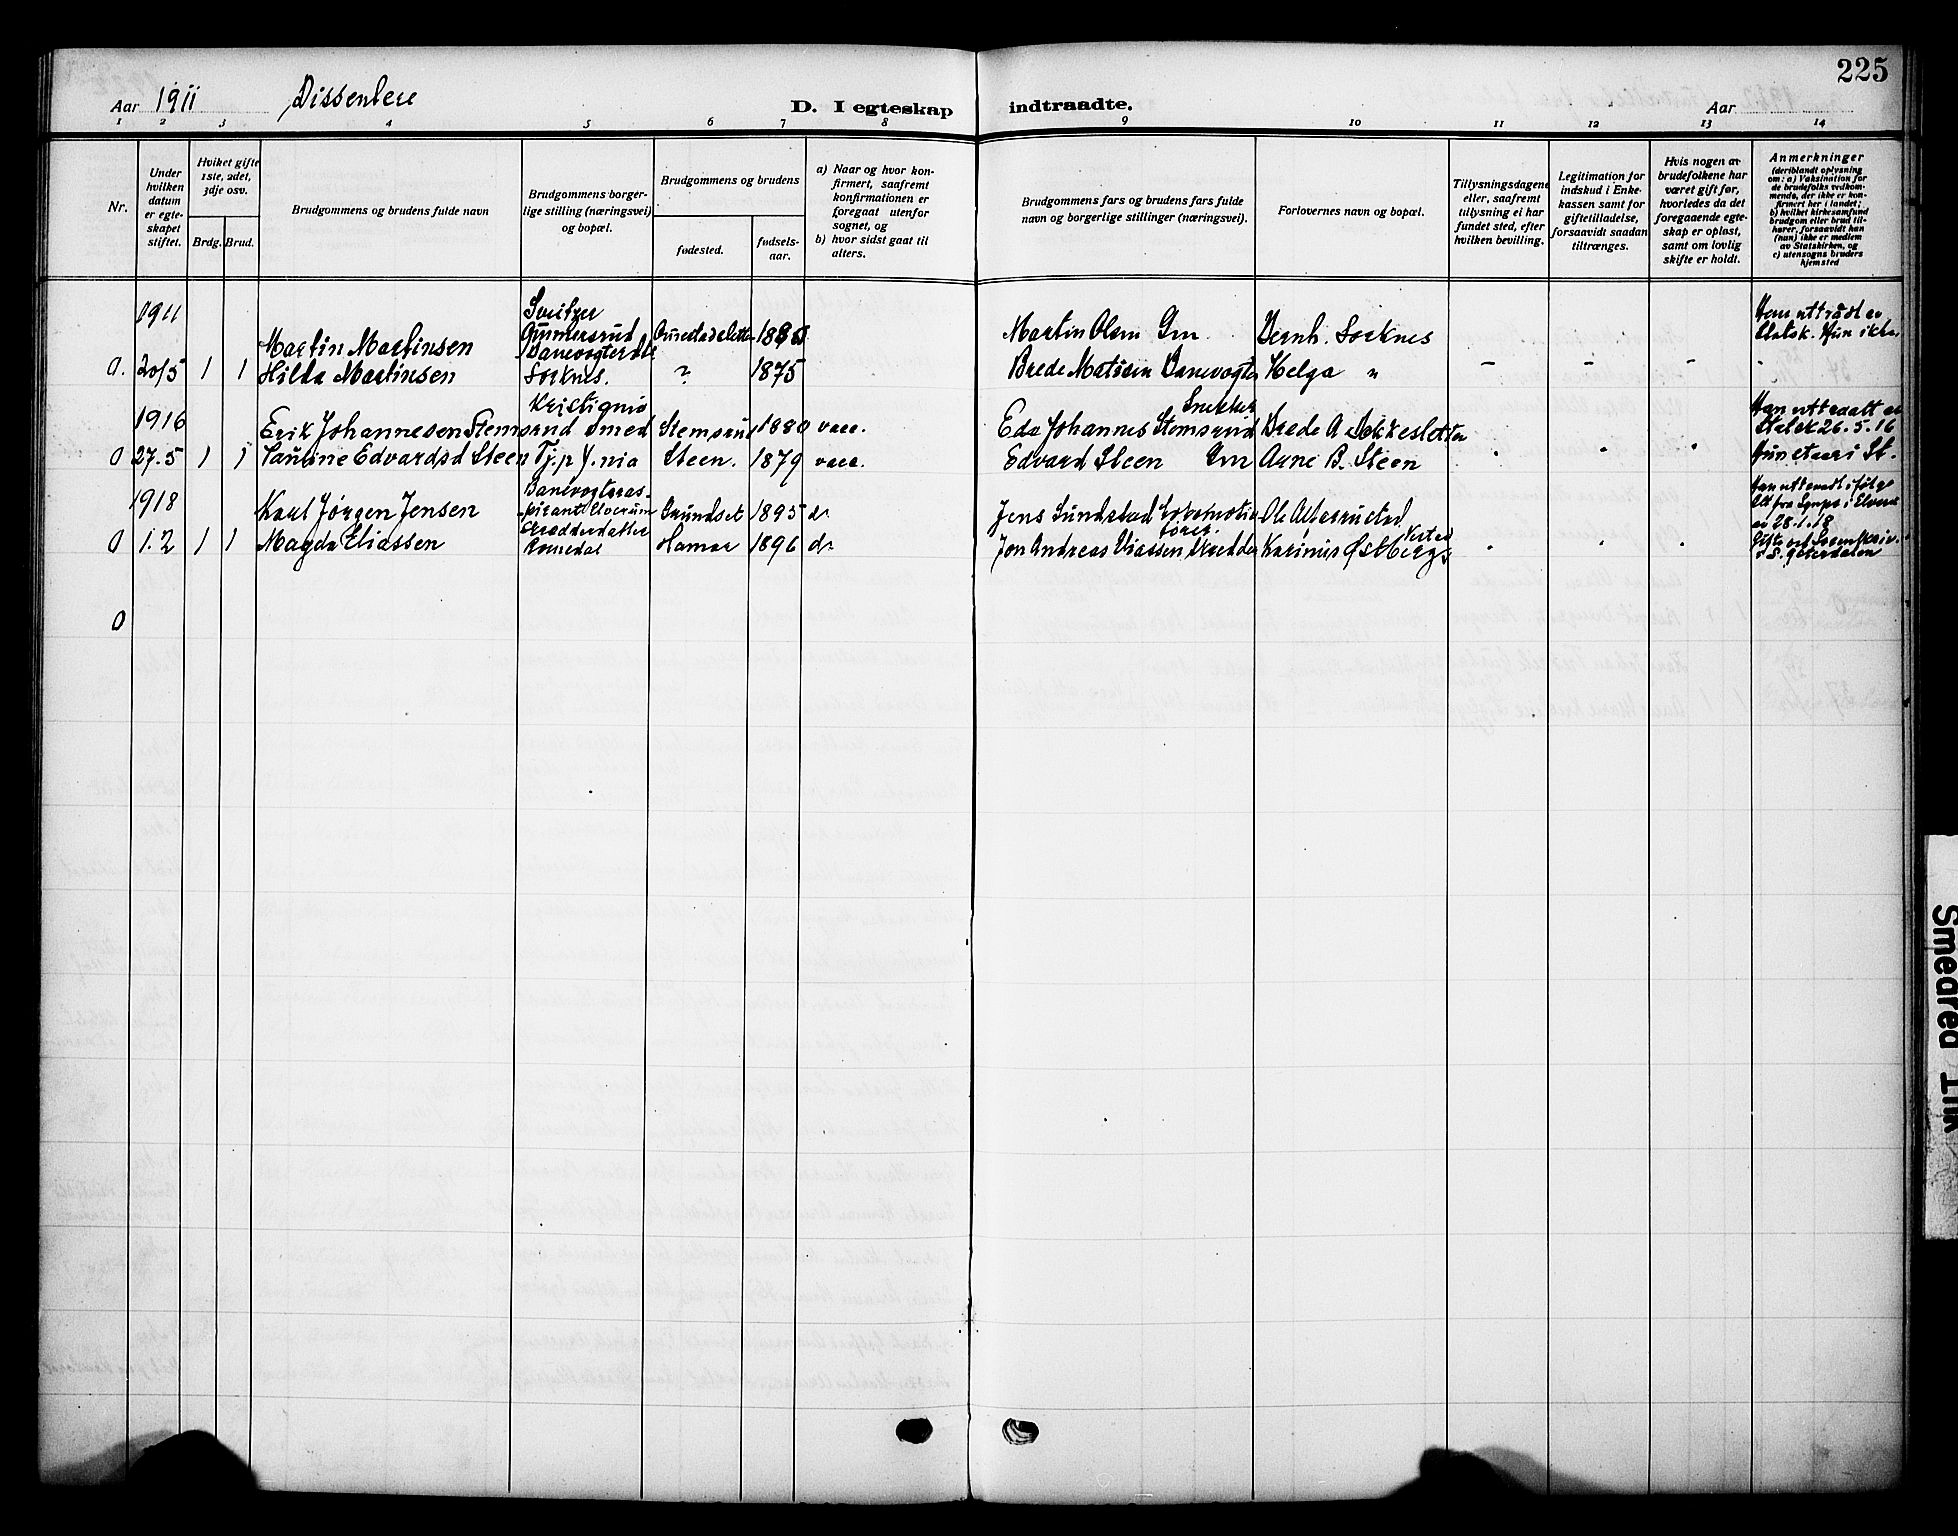 Aar 1911 Dissentere D. I egteskap indtraadte. Aar 225
1 2 3 4 5 6 7 8 9 10 11 12 13 14
Nr.
Under hvilken datum er egteskapet stiftet.
Hviket gifte 1ste, 2det, 3dje osv.
Brdg. Brud.
Brudgommens og brudens fulde navn
Brudgommens borgerlige stilling (næringsvei) og bopæl.
Brudgommens og brudens
fødested.
fødselsaar.
a) Naar og hvor konfirmert, saafremt konfirmationen er foregaat utenfor sognet, og
b) hvor sidst gaat til alters.
Brudgommens fars og brudens fars fulde navn og borgerlige stillinger (næringsvei).
Forlovernes navn og bopæl.
Tillysningsdagene eller, saafremt tillysning ei har fundet sted, efter hvilken bevilling.
Legitimation for indskud i Enkekassen samt for giftetilladelse, forsaavidt saadan tiltrænges.
Hvis nogen av brudefolkene har været gift før, hvorledes da det foregaaende egteskap er opløst, samt om lovlig skifte er holdt.
Anmerkninger (deriblandt oplysning om: a) Vaksination for de brudefolks vedkommende, der ikke er konfirmert her i landet; b) hvilket kirkesamfund brudgom eller brud tilhører, forsaavidt han (hun) ikke er medlem av Statskirken, og c) utensogns bruders hjemsted
1911
Martin Martinsen Gunnersrud Martin Olsen Gm. Bernh. Sorknes Statsk. Hun ikke.
0. 20/5 1 1 Hilda Martinsen Sorknes. ? 1875 Brede Matisen Banevogter Helga " - - - -
1916
Erik Johannesen Stemsrud smed Stemsrud 1880 vacc. Johannes Stemsrud Snekker Brede A Statsk 26.5.16
0 27.5 1 1 Pauline Edvardsd Steen Tj.p Steen. 1879 vacc. Edvard Steen Gm Arne B. Steen Hun staar i St.
1918
Karl Jørgen Jensen Elverum Grundset 1895 do Jens Sundstad 28.1.18
0 1.2 1 1 Magda Eliassen Romedal Hamar 1896 do Jon Andreas Eliassen Skredder Karinus Østberg
0
Smeared Ink